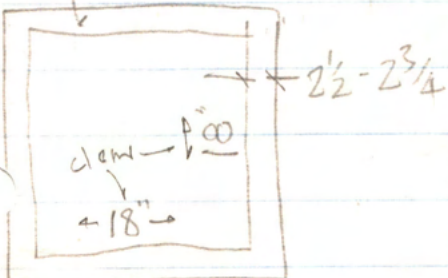 2½ - 2¾
18"
clear
18"